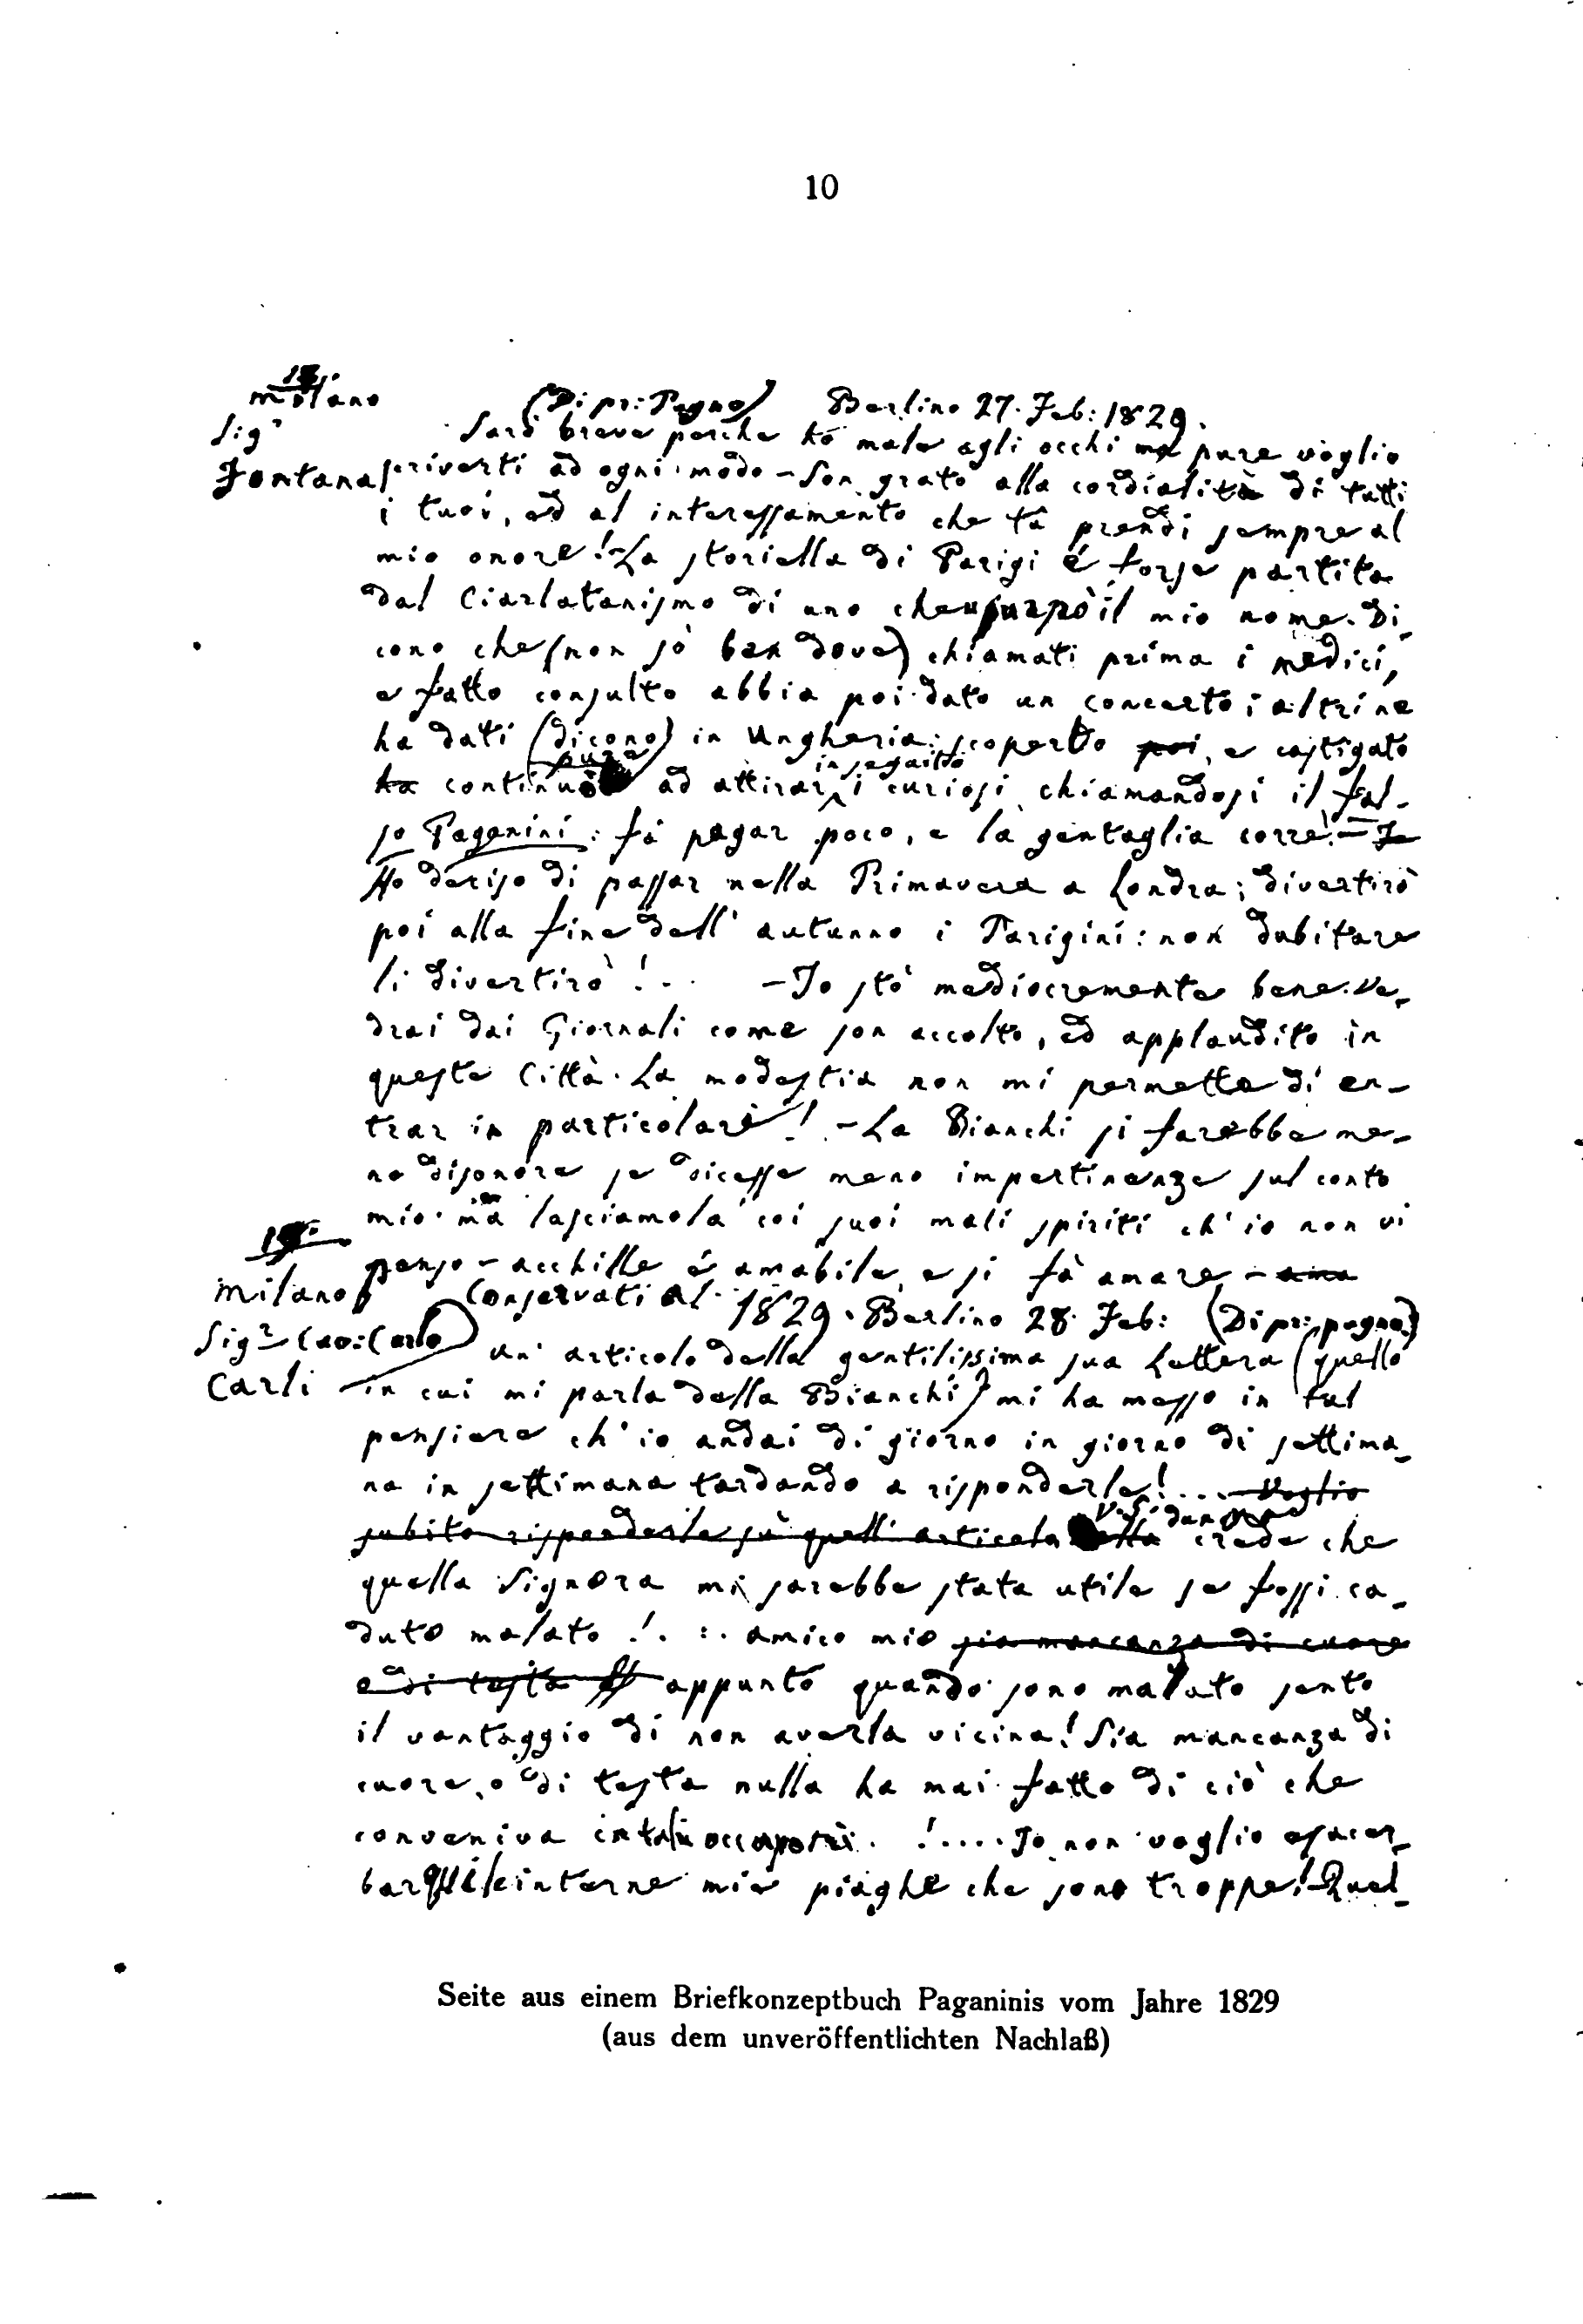 10
Milano
(Di pr: Pugno) Berlino 27. Feb: 1829.
Sigr
Sarò breve perche hò male agli occhi ma pure voglio
Fontana scriverti ad ogni modo – Son grato alla cordialità di tutti
i tuoi, ed al interessamento che tù prendi sempre al
mio onore! – La storiella di Parigi é forse partita
dal Ciarlatanismo di uno che usurpò il mio nome. Di-
cono che (non sò ben dove) chiamati prima i medici,
e fatto consulto abbia poi dato un concerto; altri ne
ha dati (dicono) in Ungheria: scoperto poi, e castigato
pure in seguitto
ha continuò ad attirar i curiosi chiamandosi il fal-
so Paganini: fà pagar poco, e la gentaglia corre! – Io
Ho deciso di passar nella Primavera a Londra; divertirò
poi alla fine dell' autunno i Parigini: non dubitare
li divertirò!.. – Io stò mediocremente bene. Ve-
drai dai Giornali come son accolto, ed applaudito in
queste Città. La modestia non mi permette di en-
trar in particolari! – La Bianchi si farebbe me-
no disonore se dicesse meno impertinenze sul conto
mio. ma lasciamola coi suoi mali spiriti ch' io non vi
penso – acchille é amabile, e si fà amare – ama
Milano Conservati al. 1829. Berlino 28. Feb: (Di pr: pugno)
Sigr Cav: Carlo un' articolo della gentilissima sua Lettera (quello
Carli in cui mi parla della Bianchi) mi ha messo in tal
pensiere ch' io andai di giorno in giorno di settima-
na in settimana tardando a risponderle!... Voglio
V. S. dunque
subito risponderle sù quell' articolo crede che
quella Signora mi sarebbe stata utile se fossi ca-
duto malato!. :. amico mio sia mancanza di cuore
e di testa appunto quando sono malato sento
il vantaggio di non averla vicina! Sia mancanza di
cuore, o di testa nulla ha mai fatto di ciò che
conveniva in tali!.... Io non voglio esacer-
bar quì le interne mie piaghe che sono troppe! Quel-
Seite aus einem Briefkonzeptbuch Paganinis vom Jahre 1829
(aus dem unveröffentlichten Nachlaß)